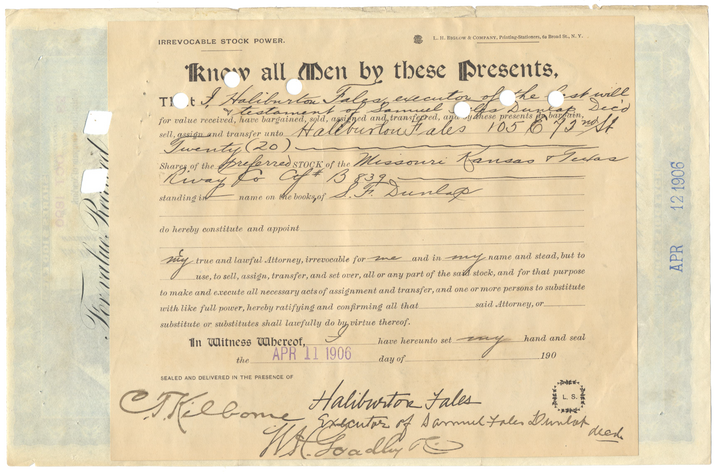 IRREVOCABLE STOCK POWER.
L. H. BIGLOW & COMPANY, Printing-Stationers, 62 Broad St., N. Y.
Know all Men by these Presents,
That I, Haliburton Fales, executor of the last will
& testament of Samuel Fales Dunlap Dec'd
for value received, have bargained, sold, assigned and transferred, and by these presents do bargain,
sell, assign and transfer unto Haliburton Fales 105 E 73nd St
Twenty (20)
Shares of the preferred STOCK of the Missouri Kansas & Texas
Rway Co Cft B 839
standing in my name on the books of S. F. Dunlap
do hereby constitute and appoint
my true and lawful Attorney, irrevocable for me and in my name and stead, but to
use, to sell, assign, transfer, and set over, all or any part of the said stock, and for that purpose
to make and execute all necessary acts of assignment and transfer, and one or more persons to substitute
with like full power, hereby ratifying and confirming all that said Attorney, or
substitute or substitutes shall lawfully do by virtue thereof.
In Witness Whereof, I have hereunto set my hand and seal
the APR 11 1906 day of 190
SEALED AND DELIVERED IN THE PRESENCE OF
L. S.
C T Kilborne
Haliburton Fales
Executor of Samuel Fales Dunlap decd.
For value Received
APR 12 1906